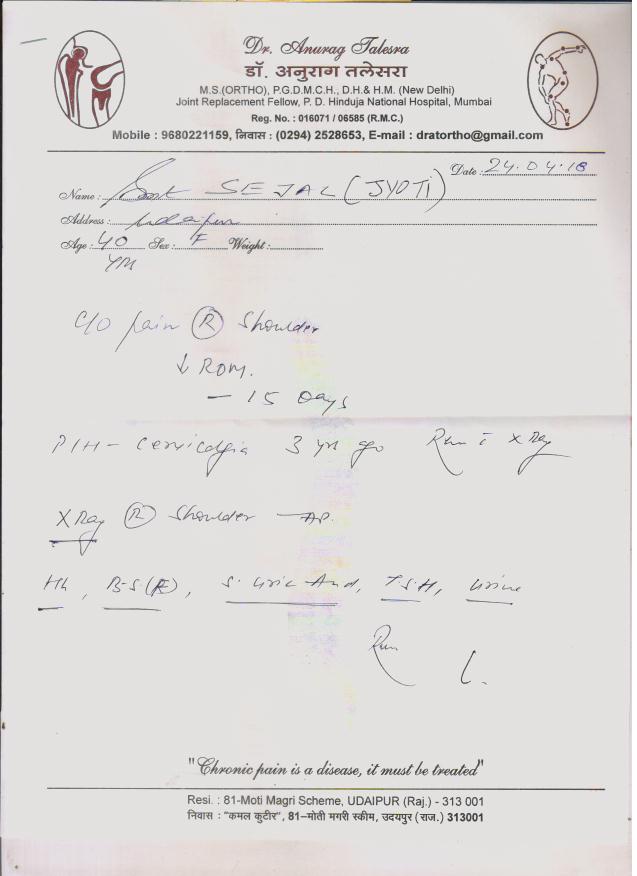 Dr. Anurag Talesra
डॉ. अनुराग तलेसरा
M.S.(ORTHO), P.G.D.M.C.H., D.H.& H.M. (New Delhi)
Joint Replacement Fellow, P. D. Hinduja National Hospital, Mumbai
Reg. No. : 016071 / 06585 (R.M.C.)
Mobile : 9680221159, निवास : (0294) 2528653, E-mail : dratortho@gmail.com
Date : 24.04.18
Name : SEJAL (JYOTI)
Address : Udaipur
Age : 40 Sex : F Weight :
yrs
C/O pain (R) Shoulder
↓ ROM.
- 15 Days
P/H - Cervicalgia 3 yrs ago X Ray
X Ray (R) Shoulder - AP.
Hb, B.S.(R), S. Uric Acid, T.S.H, Urine
"Chronic pain is a disease, it must be treated"
Resi. : 81-Moti Magri Scheme, UDAIPUR (Raj.) - 313 001
निवास : "कमल कुटीर", 81-मोती मगरी स्कीम, उदयपुर (राज.) 313001